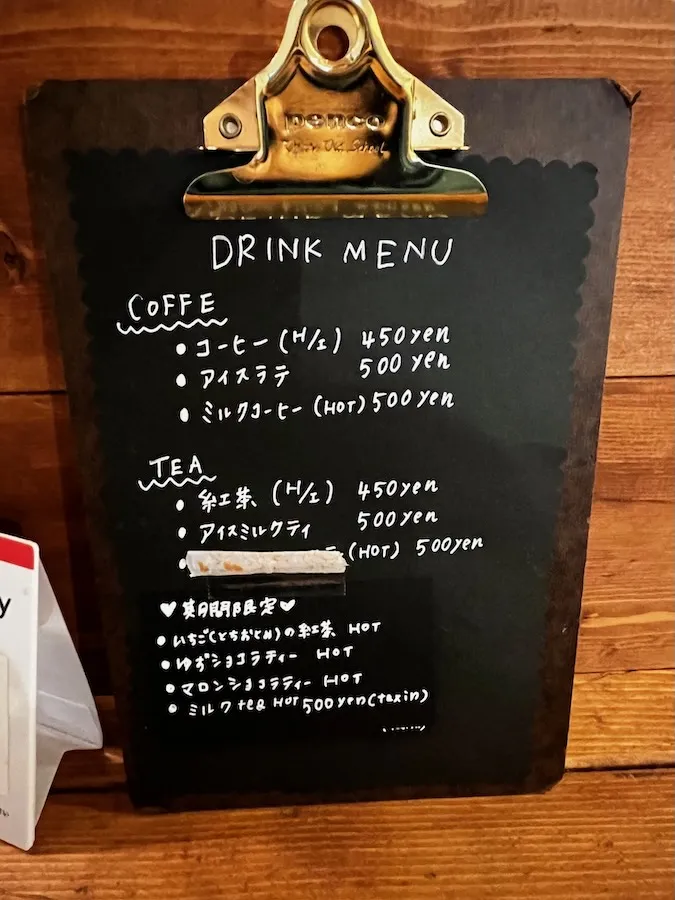 penco
DRINK MENU
COFFE
• コーヒー (H/I) 450yen
• アイスラテ 500yen
• ミルクコーヒー (HOT) 500yen
TEA
• 紅茶 (H/I) 450yen
• アイスミルクティ 500yen
• (HOT) 500yen
♥ 期間限定 ♥
• いちご(とちおとめ)の紅茶 HOT
• ゆずショコラティー HOT
• マロンショコラティー HOT
• ミルクtea HOT 500yen(taxin)
y